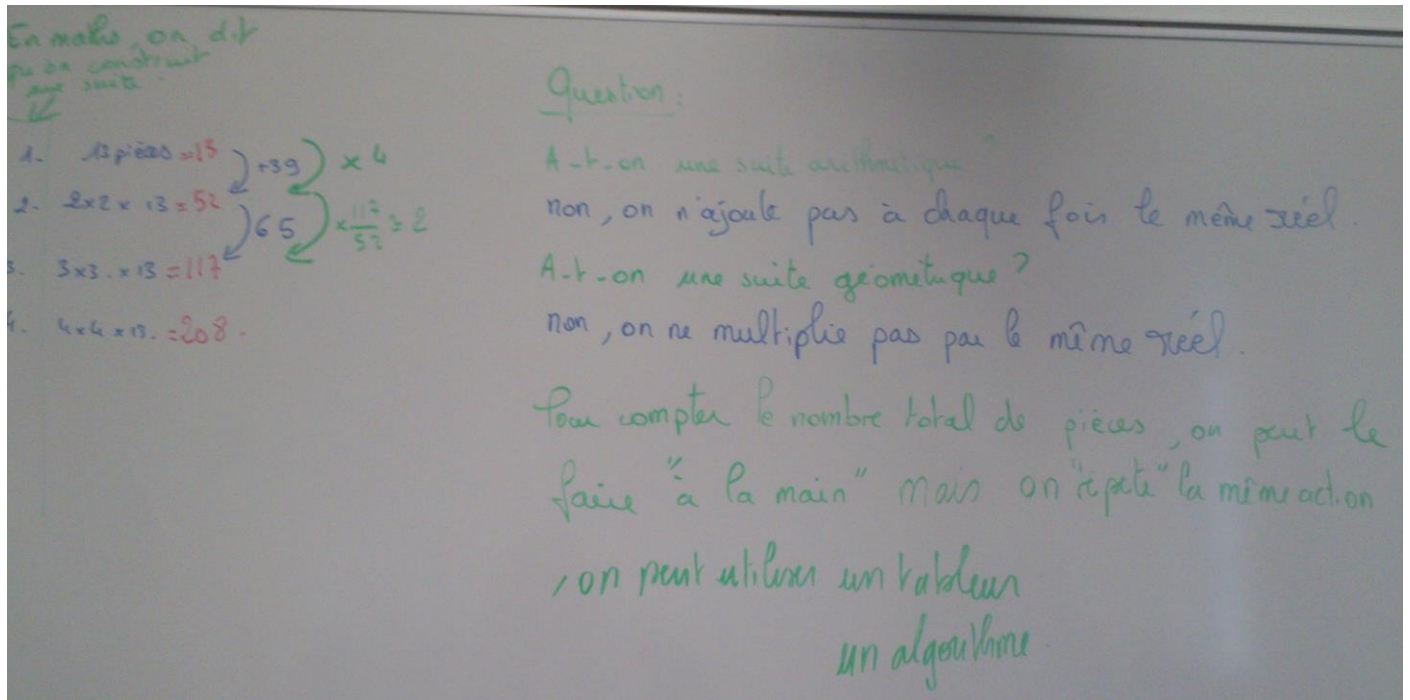 En maths, on dit
qu'on construit
une suite.
1. 13 pièces = 13
+39
× 4
2. 2×2×13 = 52
65
× 117/52 ≈ 2
3. 3×3×13 = 117
4. 4×4×13. = 208.
Question :
A-t-on une suite arithmétique ?
non, on n'ajoute pas à chaque fois le même réel.
A-t-on une suite géométrique ?
non, on ne multiplie pas par le même réel.
Pour compter le nombre total de pièces, on peut le
faire "à la main" mais on "répète" la même action
, on peut utiliser un tableur
un algorithme.